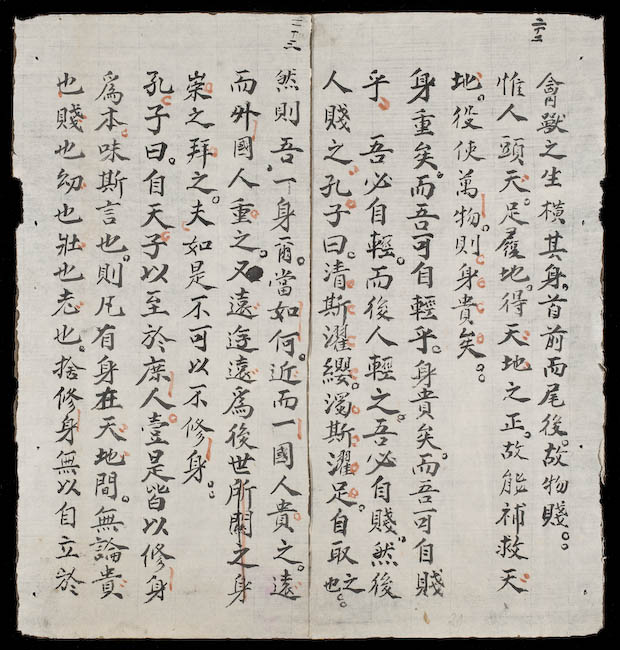 二十二
禽獸之生橫其身。首前而尾後。故物賤。
惟人頭天。足履地。得天地之正。故能補救天
地。役使萬物。則身貴矣。
身重矣。而吾可自輕乎。身貴矣。而吾可自賤
乎。 吾必自輕。而後人輕之。吾必自賤。然後
人賤之。孔子曰。清斯濯纓。濁斯濯足。自取之也。
二十三
然則吾一身爾。當如何。近而一國人貴之。遠
而外國人重之。又遠迄遠為後世所關之身
崇之拜之。夫如是不可以不修身。
孔子曰。自天子以至於庶人。壹是皆以修身
爲本。味斯言也。則凡有身在天地間。無論貴
也賤也幼也壯也老也。捨修身無以自立於